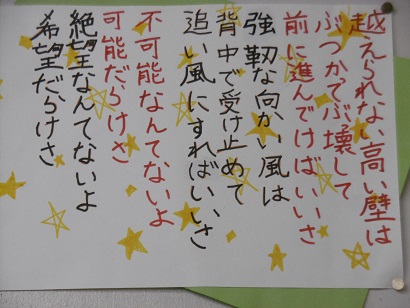 越えられない高い壁は
ぶつかってぶ壊して
前に進んでけばいいさ
強靭な向かい風は
背中で受け止めて
追い風にすればいいさ
不可能なんてないよ
可能だらけさ
絶望なんてないよ
希望だらけさ